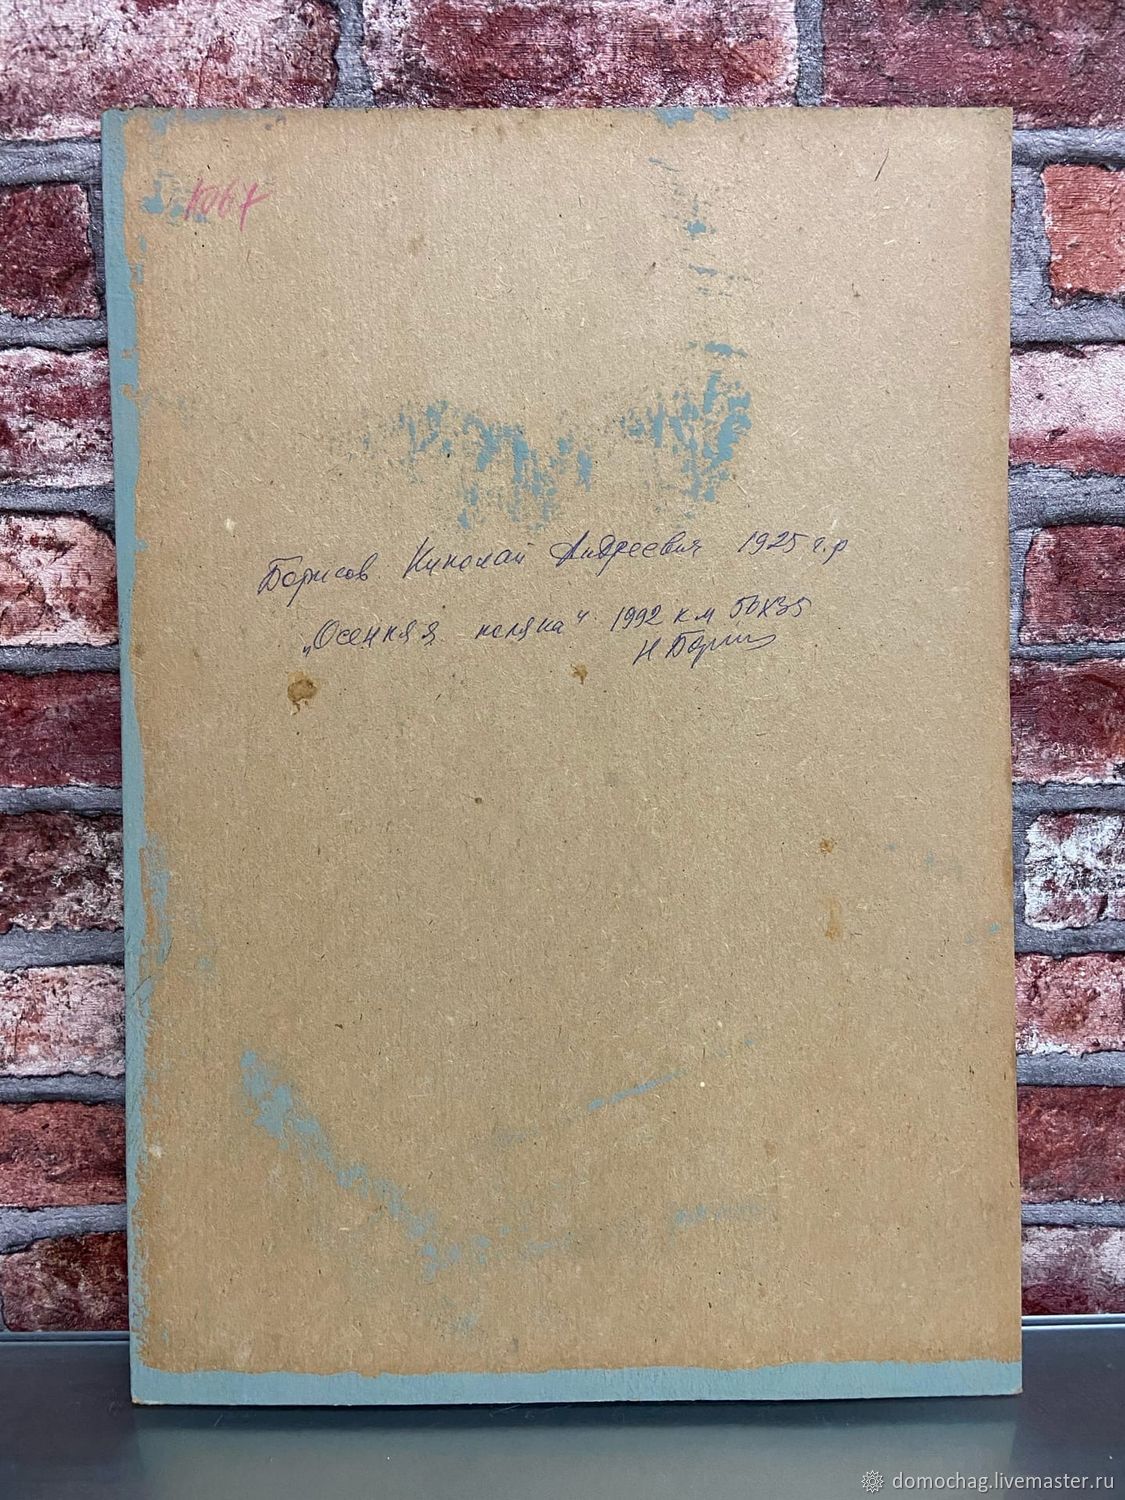 1067
Борисов Николай Андреевич 1925 г.р
„Осенняя поляна" 1992 к м 50х35
Н Борис
domochag.livemaster.ru